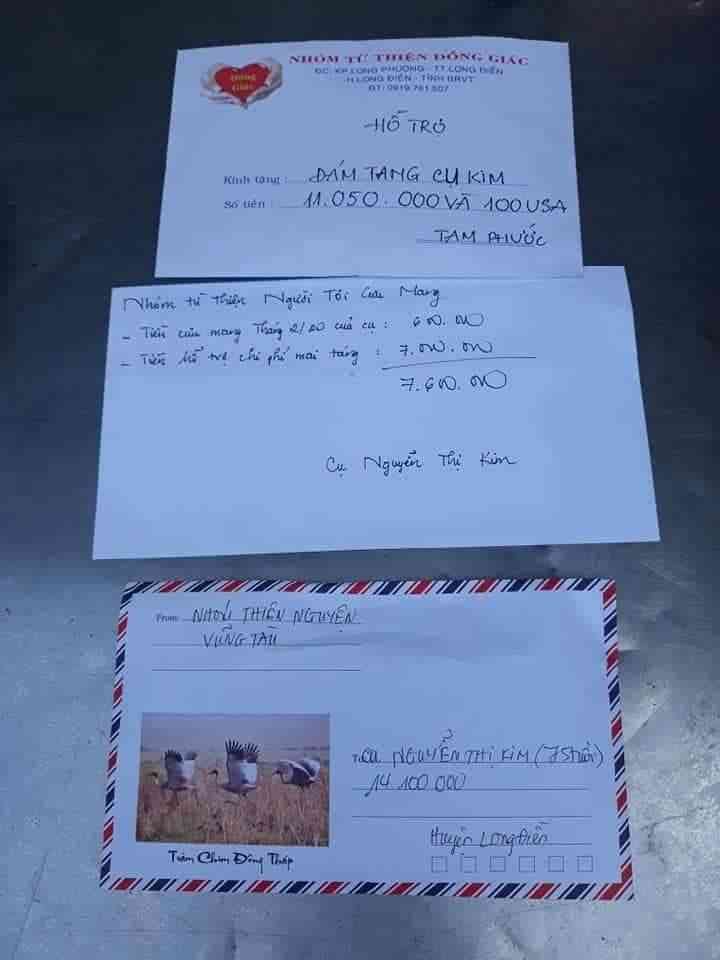 Đồng
Giác
NHÓM TỪ THIỆN ĐỒNG GIÁC
ĐC: KP LONG PHƯỢNG - TT.LONG ĐIỀN
H.LONG ĐIỀN - TỈNH BRVT
HỖ TRỢ
Kính tặng : ĐÁM TANG CỤ KIM
Số tiền : 11.050.000 VÀ 100 USA
TAM PHƯỚC
Nhóm từ thiện Người Tôi Cưu Mang
- Tiền cưu mang tháng 2/20 của cụ : 600.000
- Tiền hỗ trợ chi phí mai táng : 7.000.000
7.600.000
Cụ Nguyễn Thị Kim
From: NHÓM THIỆN NGUYỆN
VŨNG TÀU
To: CỤ NGUYỄN THỊ KIM (75 tuổi)
14 100 000
Huyện Long Điền
Tràm Chim Đồng Tháp